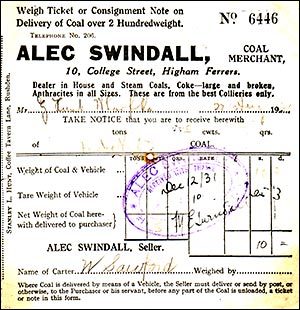 Weigh Ticket or Consignment Note on
Delivery of Coal over 2 Hundredweight.
TELEPHONE No. 206.
No 6446
ALEC SWINDALL,
COAL
MERCHANT,
10, College Street, Higham Ferrers.
Dealer in House and Steam Coals, Coke—large and broken,
Anthracites in all Sizes. These are from the best Collieries only.
M
19
TAKE NOTICE that you are to receive herewith
tons
cwt.
COAL.
STANLEY L. HUNT, Coffee Tavern Lane, Rushden.
TONS
CWTS.
QRS.
Weight of Coal & Vehicle
Dec 2/31
10
Tare Weight of Vehicle
3
Net Weight of Coal here-
with delivered to purchaser
10
ALEC SWINDALL, Seller.
Name of Carter
Weighed by
Where Coal is delivered by means of a Vehicle, the Seller must deliver or send by post, or
otherwise, to the Purchaser or his servant, before any part of the Coal is unloaded, a ticket
or note in this form.